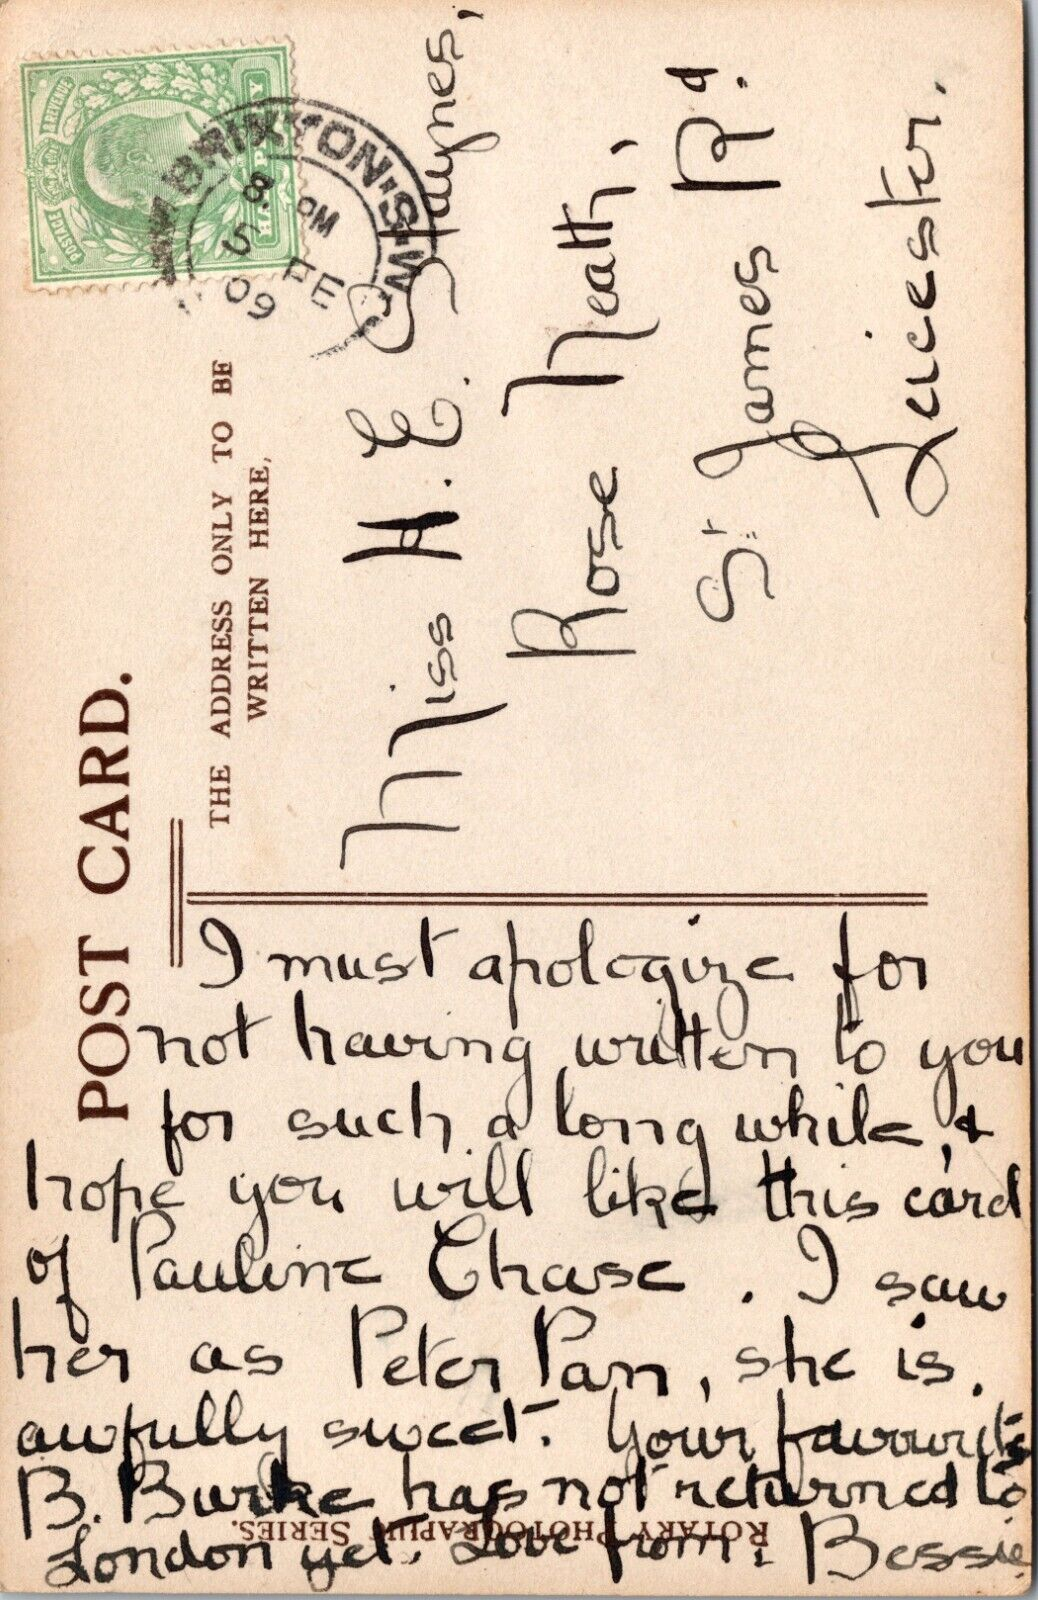 POST CARD.
THE ADDRESS ONLY TO BE
WRITTEN HERE.
POSTAGE
REVENUE
HALFPENNY
BRIXTON·S·W·
8. PM
5 FE
09
Miss H. E. Staynes,
Rose Neath,
St James Rd.
Leicester.
I must apologize for
not having written to you
for such a long while, &
hope you will like this card
of Pauline Chase. I saw
her as Peter Pan, she is
awfully sweet. Your favourite
B. Burke has not returned to
London yet. Love from Bessie
ROTARY PHOTOGRAPHIC SERIES.